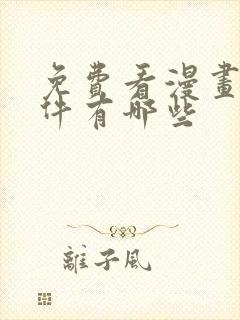 免費看漫畫
件有哪些
離子風